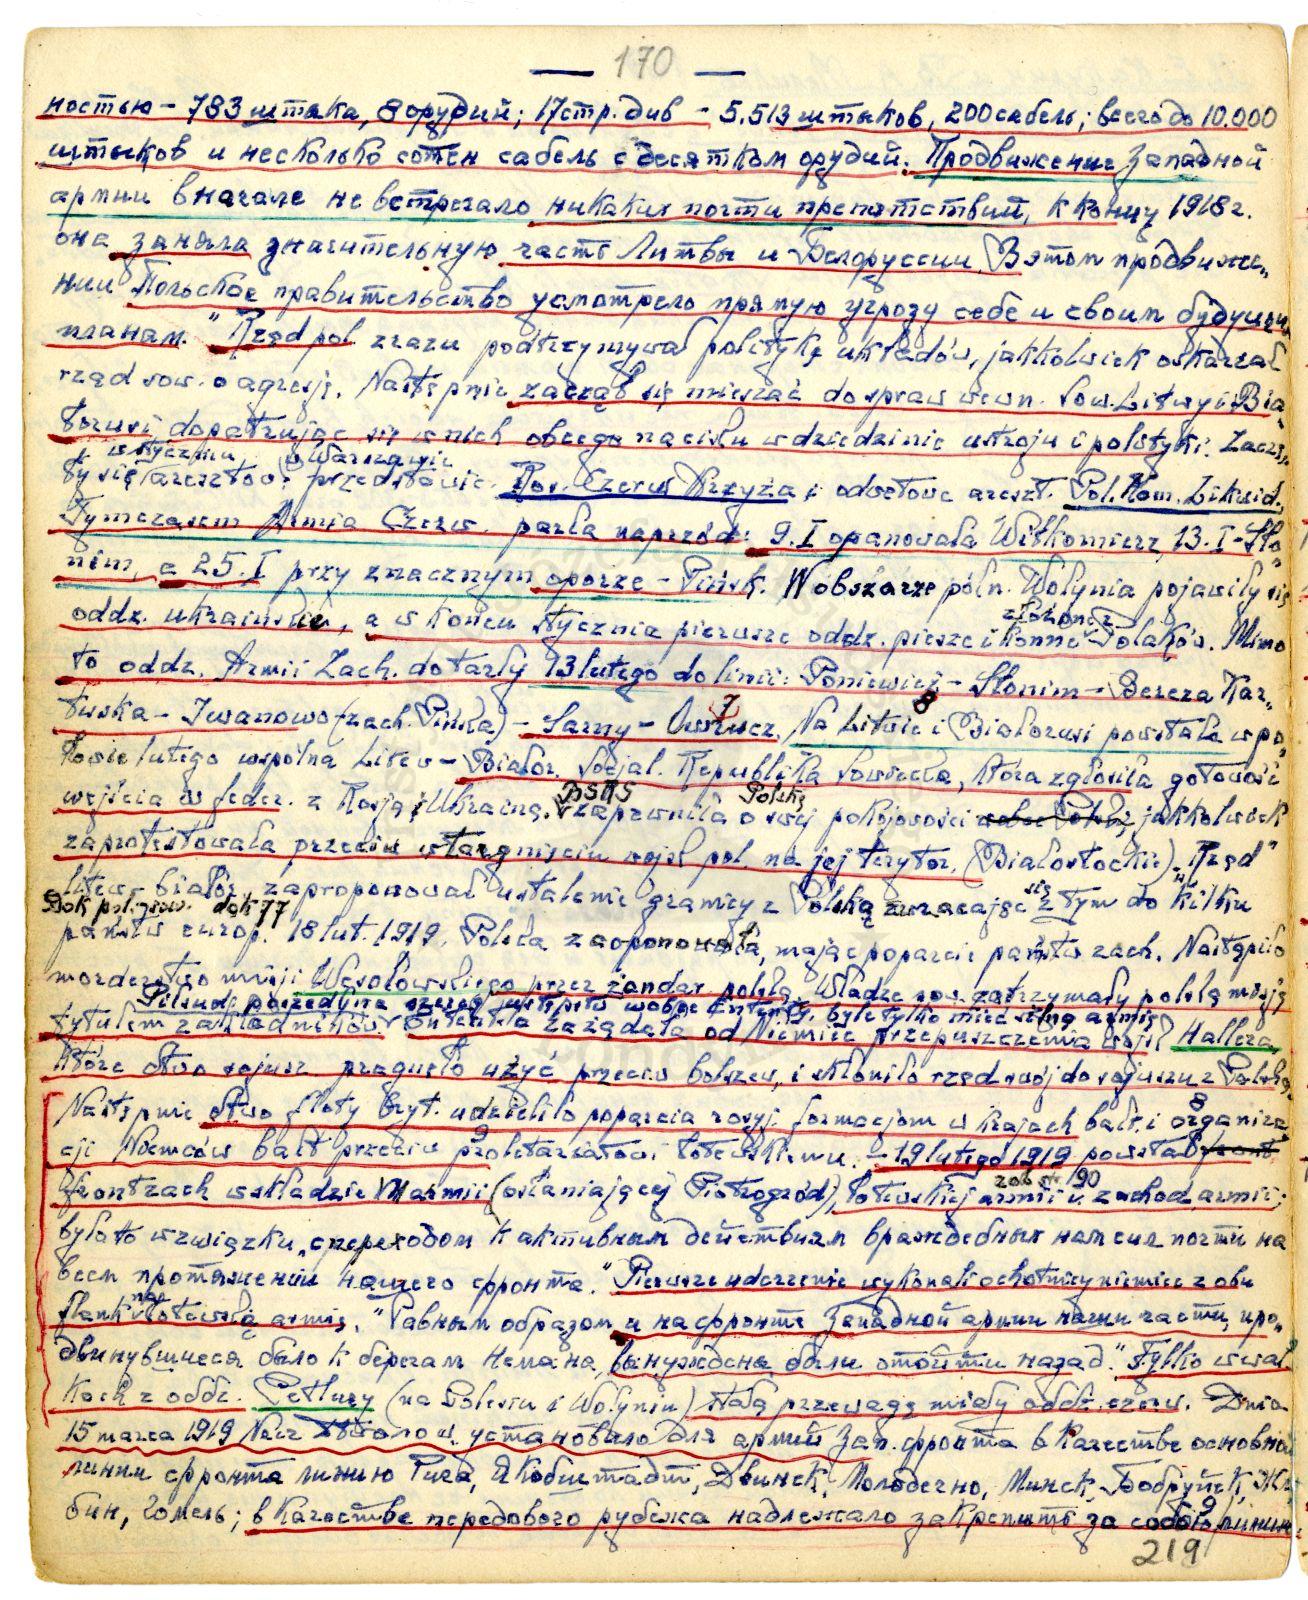 — 170 —
ностью – 783 штыка, 8 орудий; 17 стр. див – 5.513 штыков, 200 сабель; всего до 10.000
штыков и несколько сотен сабель с десятком орудий. Продвижение Западной
армии вначале не встречало никаких почти препятствий, к концу 1918 г.
она заняла значительную часть Литвы и Белоруссии. В этом продвиже„
нии Польское правительство усмотрело прямую угрозу себе и своим будущим
планам." Rząd pol zrazu podtrzymywał politykę układów, jakkolwiek oskarżał
rząd sow. o agresję. Następnie zaczął się mieszać do spraw wewn. Sow. Litwy i Bia„
łorusi dopatrując się w nich obcego nacisku w dziedzinie ustroju i polityki. Zaczę„
w styczniu w Warszawie
ły się aresztow. przedstawic. Ros. Czerw Krzyża i odwetowe areszt. Pol. Kom. Likwid.
Tymczasem Armia Czerw. parła naprzód: 9.I opanowała Wiłkomierz 13.I – Sło„
nim, a 25.I przy znacznym oporze – Pińsk. W obszarze półn. Wołynia pojawiły się
oddz. ukraińskie, a w końcu stycznia pierwsze oddz. piesze i konne Polaków. Mimo
to oddz. Armii Zach. dotarły 13 lutego do linii: Poniewież – Słonim – Bereza Kar„
tuska – Iwanowo (zach. Pińska) – Sarny – Owrucz. 7 Na Litwie i Białorusi 8 powstała w po„
łowie lutego wspólna Litew – Białor. Socjal. Republika Sowiecka, która zgłosiła gotowość
wejścia w feder. z Rosją i Ukrainą. BSRS zapewniła Polskę o swej pokojowości wobec Polski, jakkolwiek
zaprotestowała przeciw wtargnięciu wojsk pol na jej terytor. (Białostockie). "Rząd"
litew. białor. zaproponował ustalenie granicy z Polską zwracając się z tym do kilku
Dok pol. sow. dok 77
państw europ. 18 lut. 1919. Polska zaoponowała, mając poparcie państw zach. Nastąpiło
morderstwo misji Wesołowskiego przez żandar. polską. Władze sow. zatrzymały polską misję
Piłsud. poszedł na szereg ustępstw wobec Ententy, byle tylko mieć silną armię
tytułem zakładników. Ententa zażądała od Niemiec przepuszczenia wojsk Hallera,
które dtwo sojusz. pragnęło użyć przeciw bolszew. i skłoniło rząd swój do sojuszu z Polską.
Następnie dtwo floty bryt. udzieliło poparcia rosyj. formacjom w krajach bałt. i organiza„ 8
cji Niemców bałt przeciw proletariatowi łotewskiemu. 9 – 19 lutego 1919 powstał front
front zach w składzie armii (osłaniającej Piotrogród), łotewskiej armii i zachod. armii; 90
było to w związku „с переходом к активным действиям враждебных нам сил почти на
всем протяжении нашего фронта." Pierwsze uderzenie wykonali ochotnicy niemiec z obu
flank na łotewską armię. "Равным образом и на фронте Западной армии наши части, про„
двинувшиеся было к берегам Немана, вынуждены были отойти назад." Tylko w wal„
kach z oddz. Petlury (na Polesiu i Wołyniu) stałą przewagę miały oddz. czerw. Dnia
15 marca 1919 Nacz dtwo установило для армий Зап. фронта в качестве основной
линии фронта линию Рига, Якобштадт, Двинск, Молодечно, Минск, Бобруйск, Жло
бин, Гомель; в качестве передового рубежа надлежало закрепить за собою линию 9
219